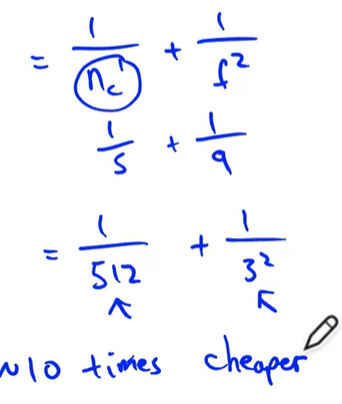 = 1/n_c' + 1/f²
1/5 + 1/9
= 1/512 + 1/3²
~10 times cheaper